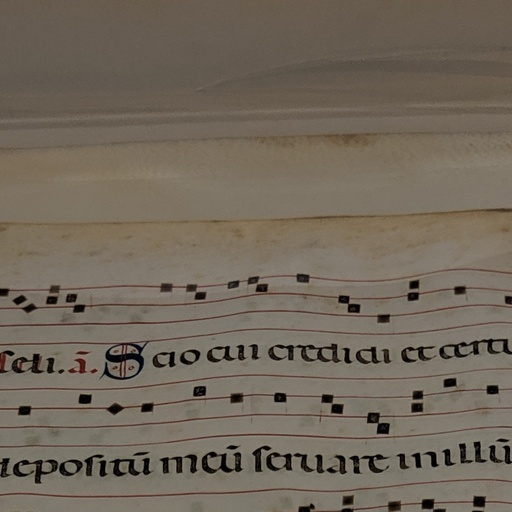 scłi. ā. Scio cui credidi et certu
depositū meū seruare in illū